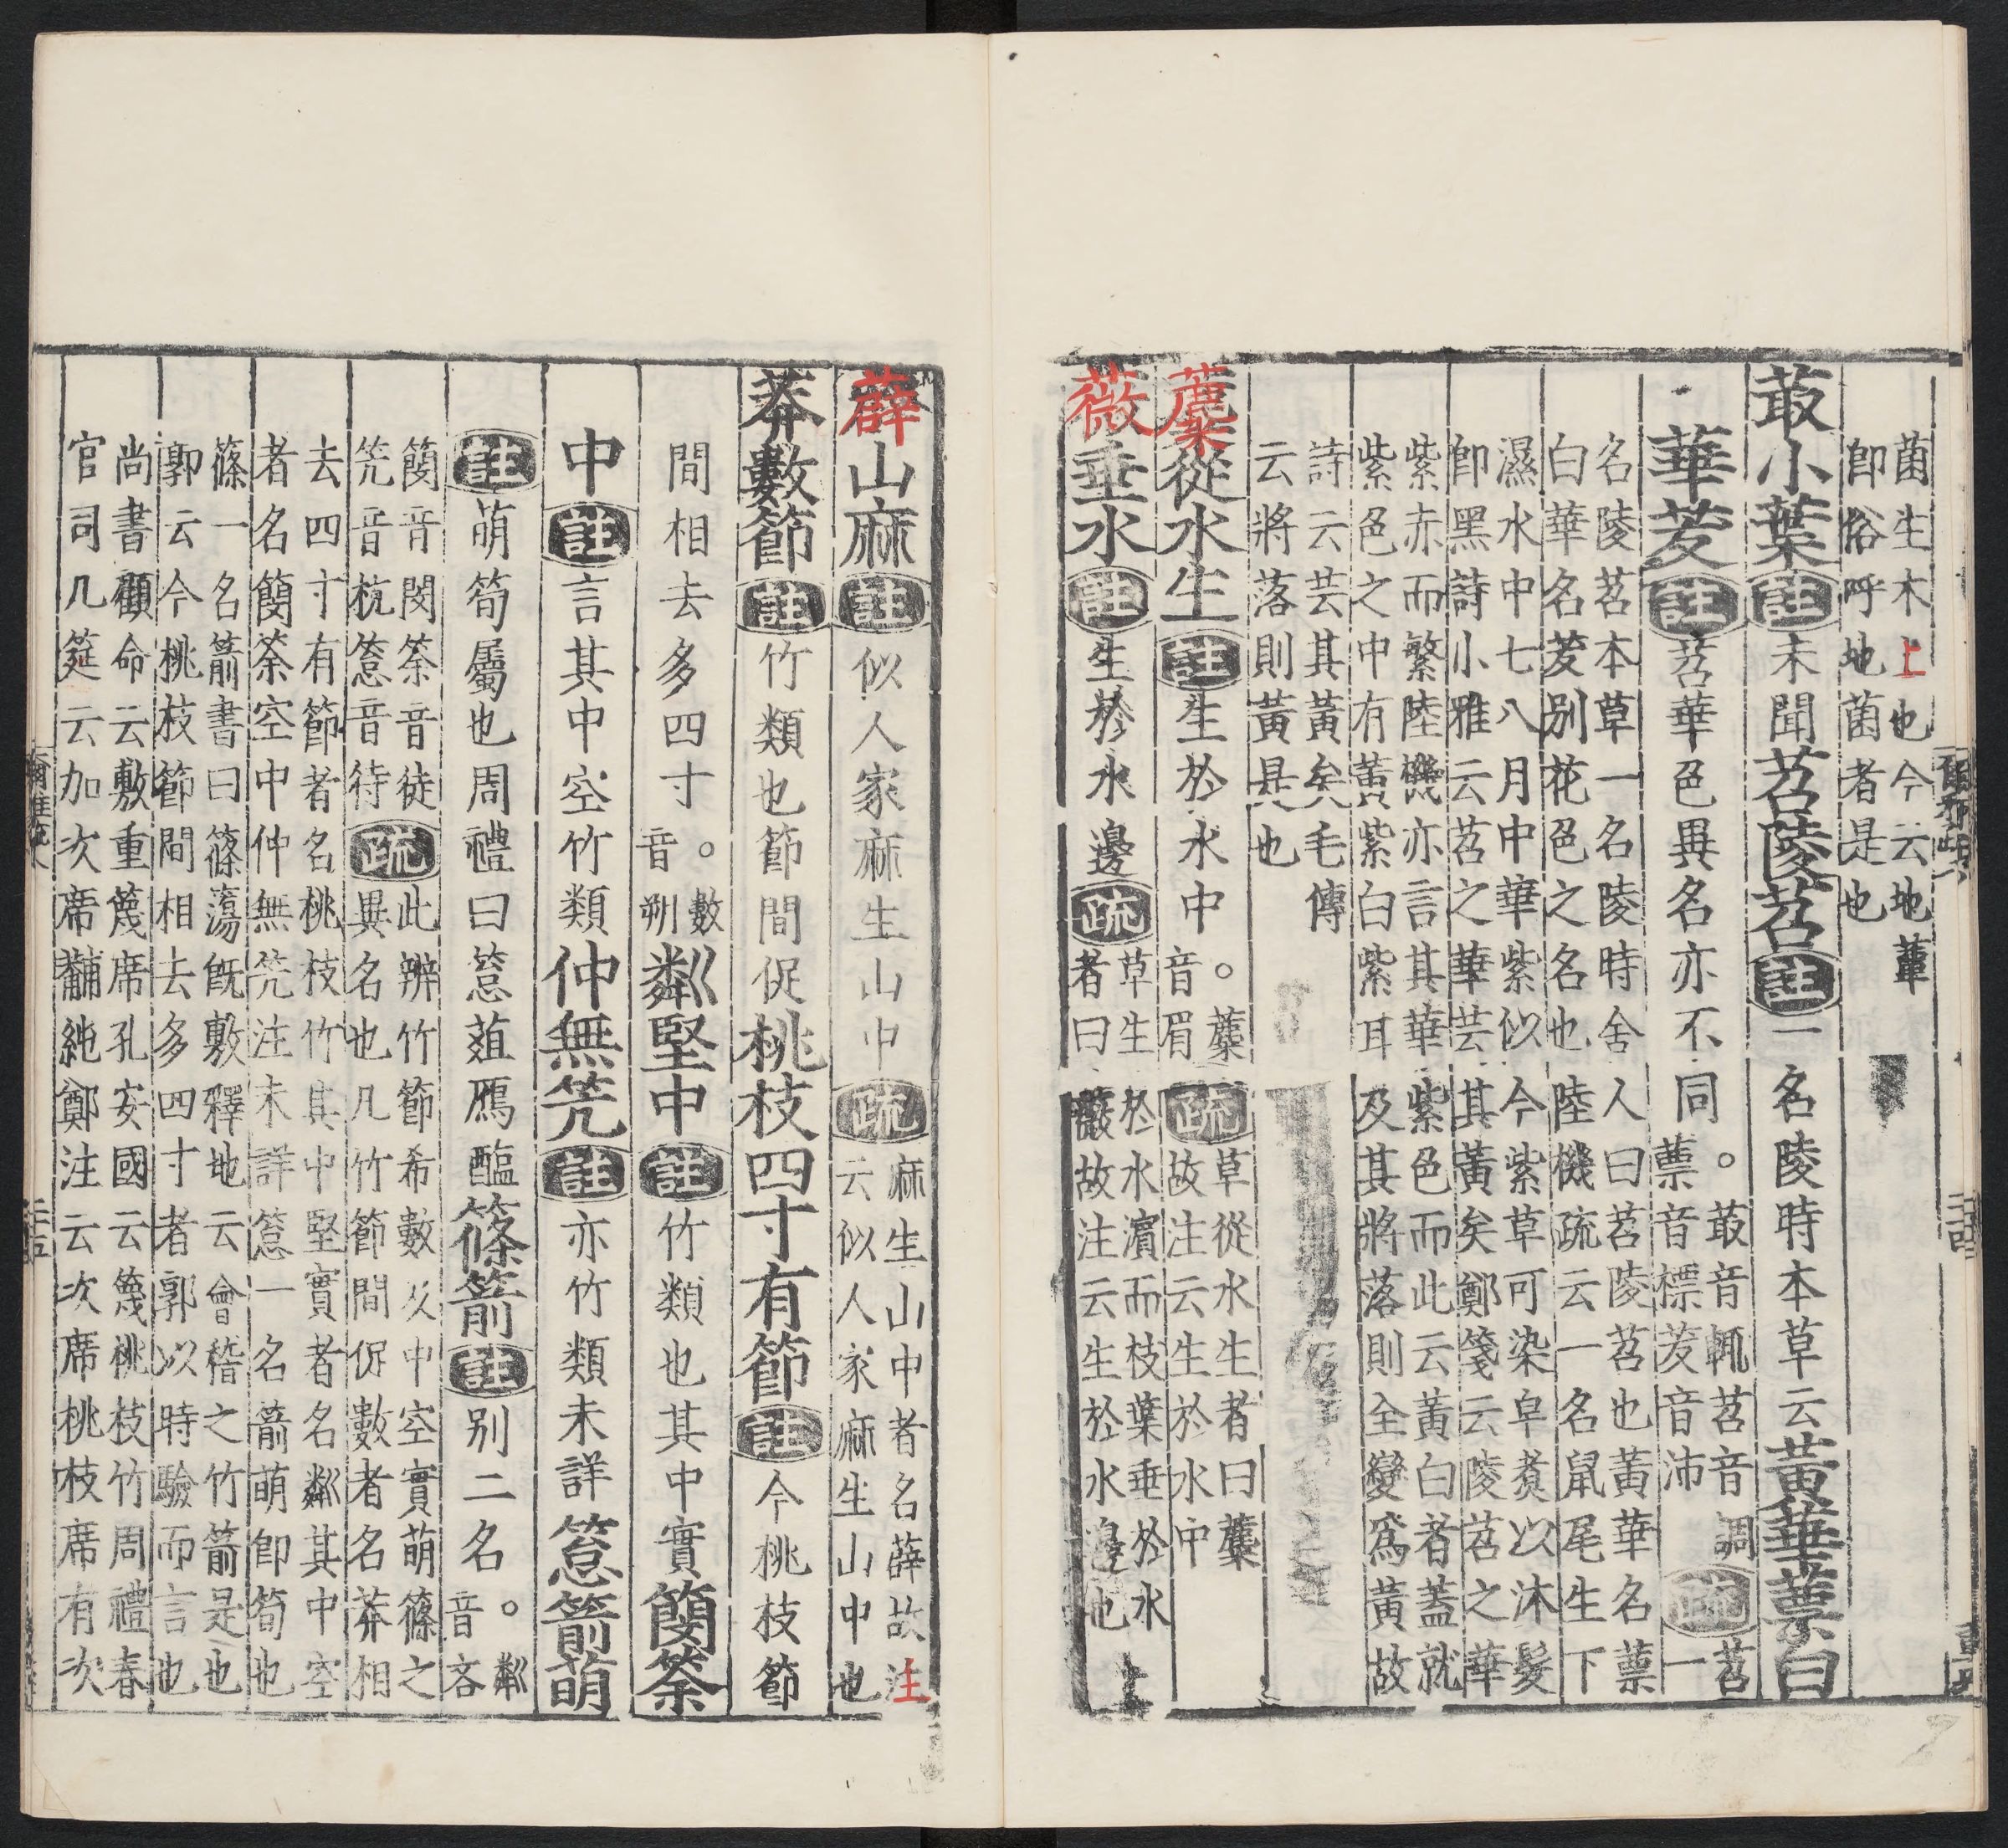 菌生木上也今云地蕈
卽俗呼地菌者是也
菆小葉註未聞苕陵苕註一名陵時本草云黃華蔈白
華茇註苕華色異名亦不同。菆音輒苕音調
蔈音標茇音沛
疏苕一
名陵苕本草一名陵時舍人曰苕陵苕也黃華名蔈
白華名茇别花色之名也陸機疏云一名鼠尾生下
濕水中七八月中華紫似今紫草可染皁煑以沐髮
卽黑詩小雅云苕之華芸其黃矣鄭箋云陵苕之華
紫赤而繁陸機亦言其華紫色而此云黃白者蓋就
紫色之中有黃紫白紫耳及其將落則全變爲黃故
詩云芸其黃矣毛傳
云將落則黃是也
蘪從水生註生於水中。蘪
音眉
疏草從水生者曰蘪
故注云生於水中
薇垂水註生於水邊疏草生於水濵而枝葉垂於水
者曰薇故注云生於水邊也
薜山麻註似人家麻生山中疏麻生山中者名薜故注
云似人家麻生山中也
莽數節註竹類也節間促桃枝四寸有節註今桃枝節
間相去多四寸。數
音朔
粼堅中註竹類也其中實簢筡
中註言其中空竹類仲無笐註亦竹類未詳䈚箭萌
註萌筍屬也周禮曰䈚菹鴈醢篠箭註别二名。粼
音吝
簢音閔筡音徒
笐音杭䈚音待
疏此辨竹節希數及中空實萌篠之
異名也凡竹節間促數者名莽相
去四寸有節者名桃枝竹其中堅實者名粼其中空
者名簢筡空中仲無笐注未詳䈚一名箭萌卽筍也
篠一名箭書曰篠簜旣敷釋地云會稽之竹箭是也
郭云今桃枝節間相去多四寸者郭以時驗而言也
尚書顧命云敷重篾席孔安國云篾桃枝竹周禮春
官司几筵云加次席黼純鄭注云次席桃枝席有次